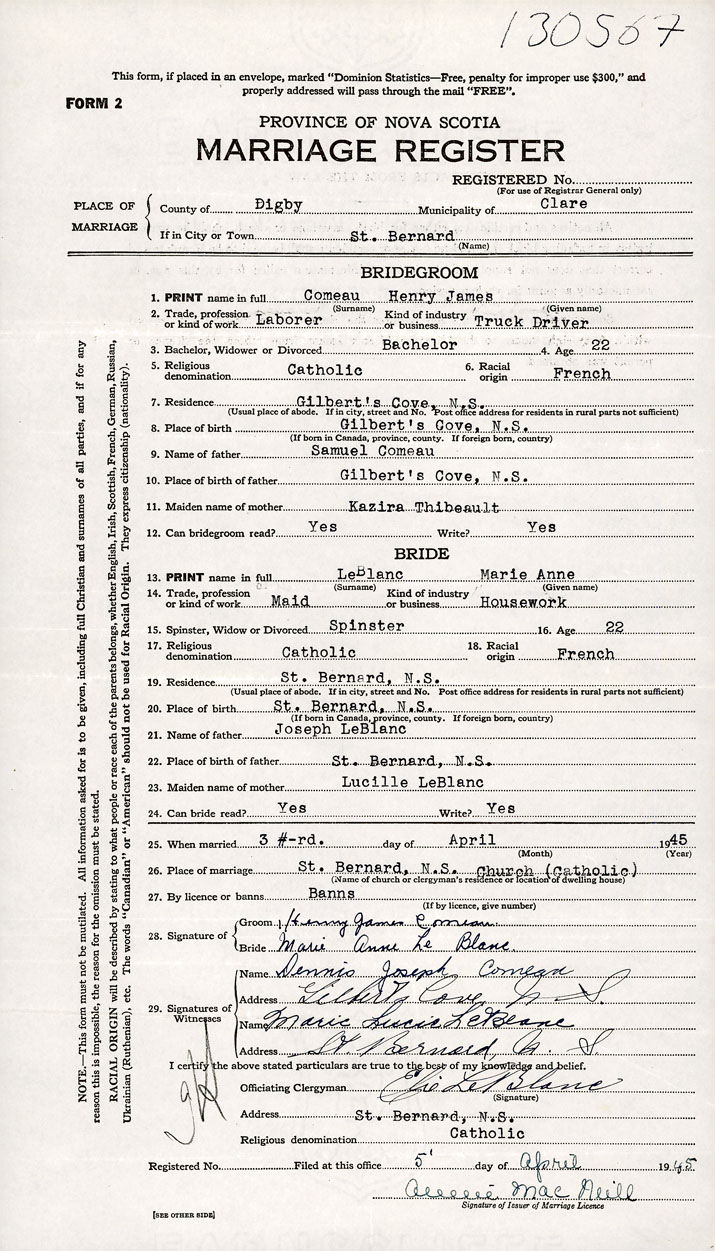 130567
This form, if placed in an envelope, marked "Dominion Statistics—Free, penalty for improper use $300," and
properly addressed will pass through the mail "FREE".
FORM 2
PROVINCE OF NOVA SCOTIA
MARRIAGE REGISTER
REGISTERED No.
(For use of Registrar General only)
PLACE OF MARRIAGE
County of Digby Municipality of Clare
If in City or Town St. Bernard
(Name)
BRIDEGROOM
1. PRINT name in full Comeau Henry James
(Surname) (Given name)
2. Trade, profession or kind of work Laborer Kind of industry or business Truck Driver
3. Bachelor, Widower or Divorced Bachelor 4. Age 22
5. Religious denomination Catholic 6. Racial origin French
7. Residence Gilbert's Cove, N.S.
(Usual place of abode. If in city, street and No. Post office address for residents in rural parts not sufficient)
8. Place of birth Gilbert's Cove, N.S.
(If born in Canada, province, county. If foreign born, country)
9. Name of father Samuel Comeau
10. Place of birth of father Gilbert's Cove, N.S.
11. Maiden name of mother Kazira Thibeault
12. Can bridegroom read? Yes Write? Yes
BRIDE
13. PRINT name in full LeBlanc Marie Anne
(Surname) (Given name)
14. Trade, profession or kind of work Maid Kind of industry or business Housework
15. Spinster, Widow or Divorced Spinster 16. Age 22
17. Religious denomination Catholic 18. Racial origin French
19. Residence St. Bernard, N.S.
(Usual place of abode. If in city, street and No. Post office address for residents in rural parts not sufficient)
20. Place of birth St. Bernard, N.S.
(If born in Canada, province, county. If foreign born, country)
21. Name of father Joseph LeBlanc
22. Place of birth of father St. Bernard, N.S.
23. Maiden name of mother Lucille LeBlanc
24. Can bride read? Yes Write? Yes
25. When married 3 #-rd. day of April 1945
(Month) (Year)
26. Place of marriage St. Bernard, N.S. Church (Catholic)
(Name of church or clergyman's residence or location of dwelling house)
27. By licence or banns Banns
(If by licence, give number)
28. Signature of
Groom Henny James Comeau
Bride Marie Anne Le Blanc
29. Signatures of Witnesses
Name Dennis Joseph Comeau
Address Gilberts Cove, N S.
Name Marie Lucie LeBlanc
Address St. Bernard, N. S
I certify the above stated particulars are true to the best of my knowledge and belief.
Officiating Clergyman Elie LeBlanc
(Signature)
Address St. Bernard, N.S.
Religious denomination Catholic
Registered No. Filed at this office 5 day of April 1945
Annie Mac Neill
Signature of Issuer of Marriage Licence
[SEE OTHER SIDE]
NOTE.—This form must not be mutilated. All information asked for is to be given, including full Christian and surnames of all parties, and if for any
reason this is impossible, the reason for the omission must be stated.
RACIAL ORIGIN will be described by stating to what people or race each of the parents belongs, whether English, Irish, Scottish, French, German, Russian,
Ukrainian (Ruthenian), etc. The words "Canadian" or "American" should not be used for Racial Origin. They express citizenship (nationality).